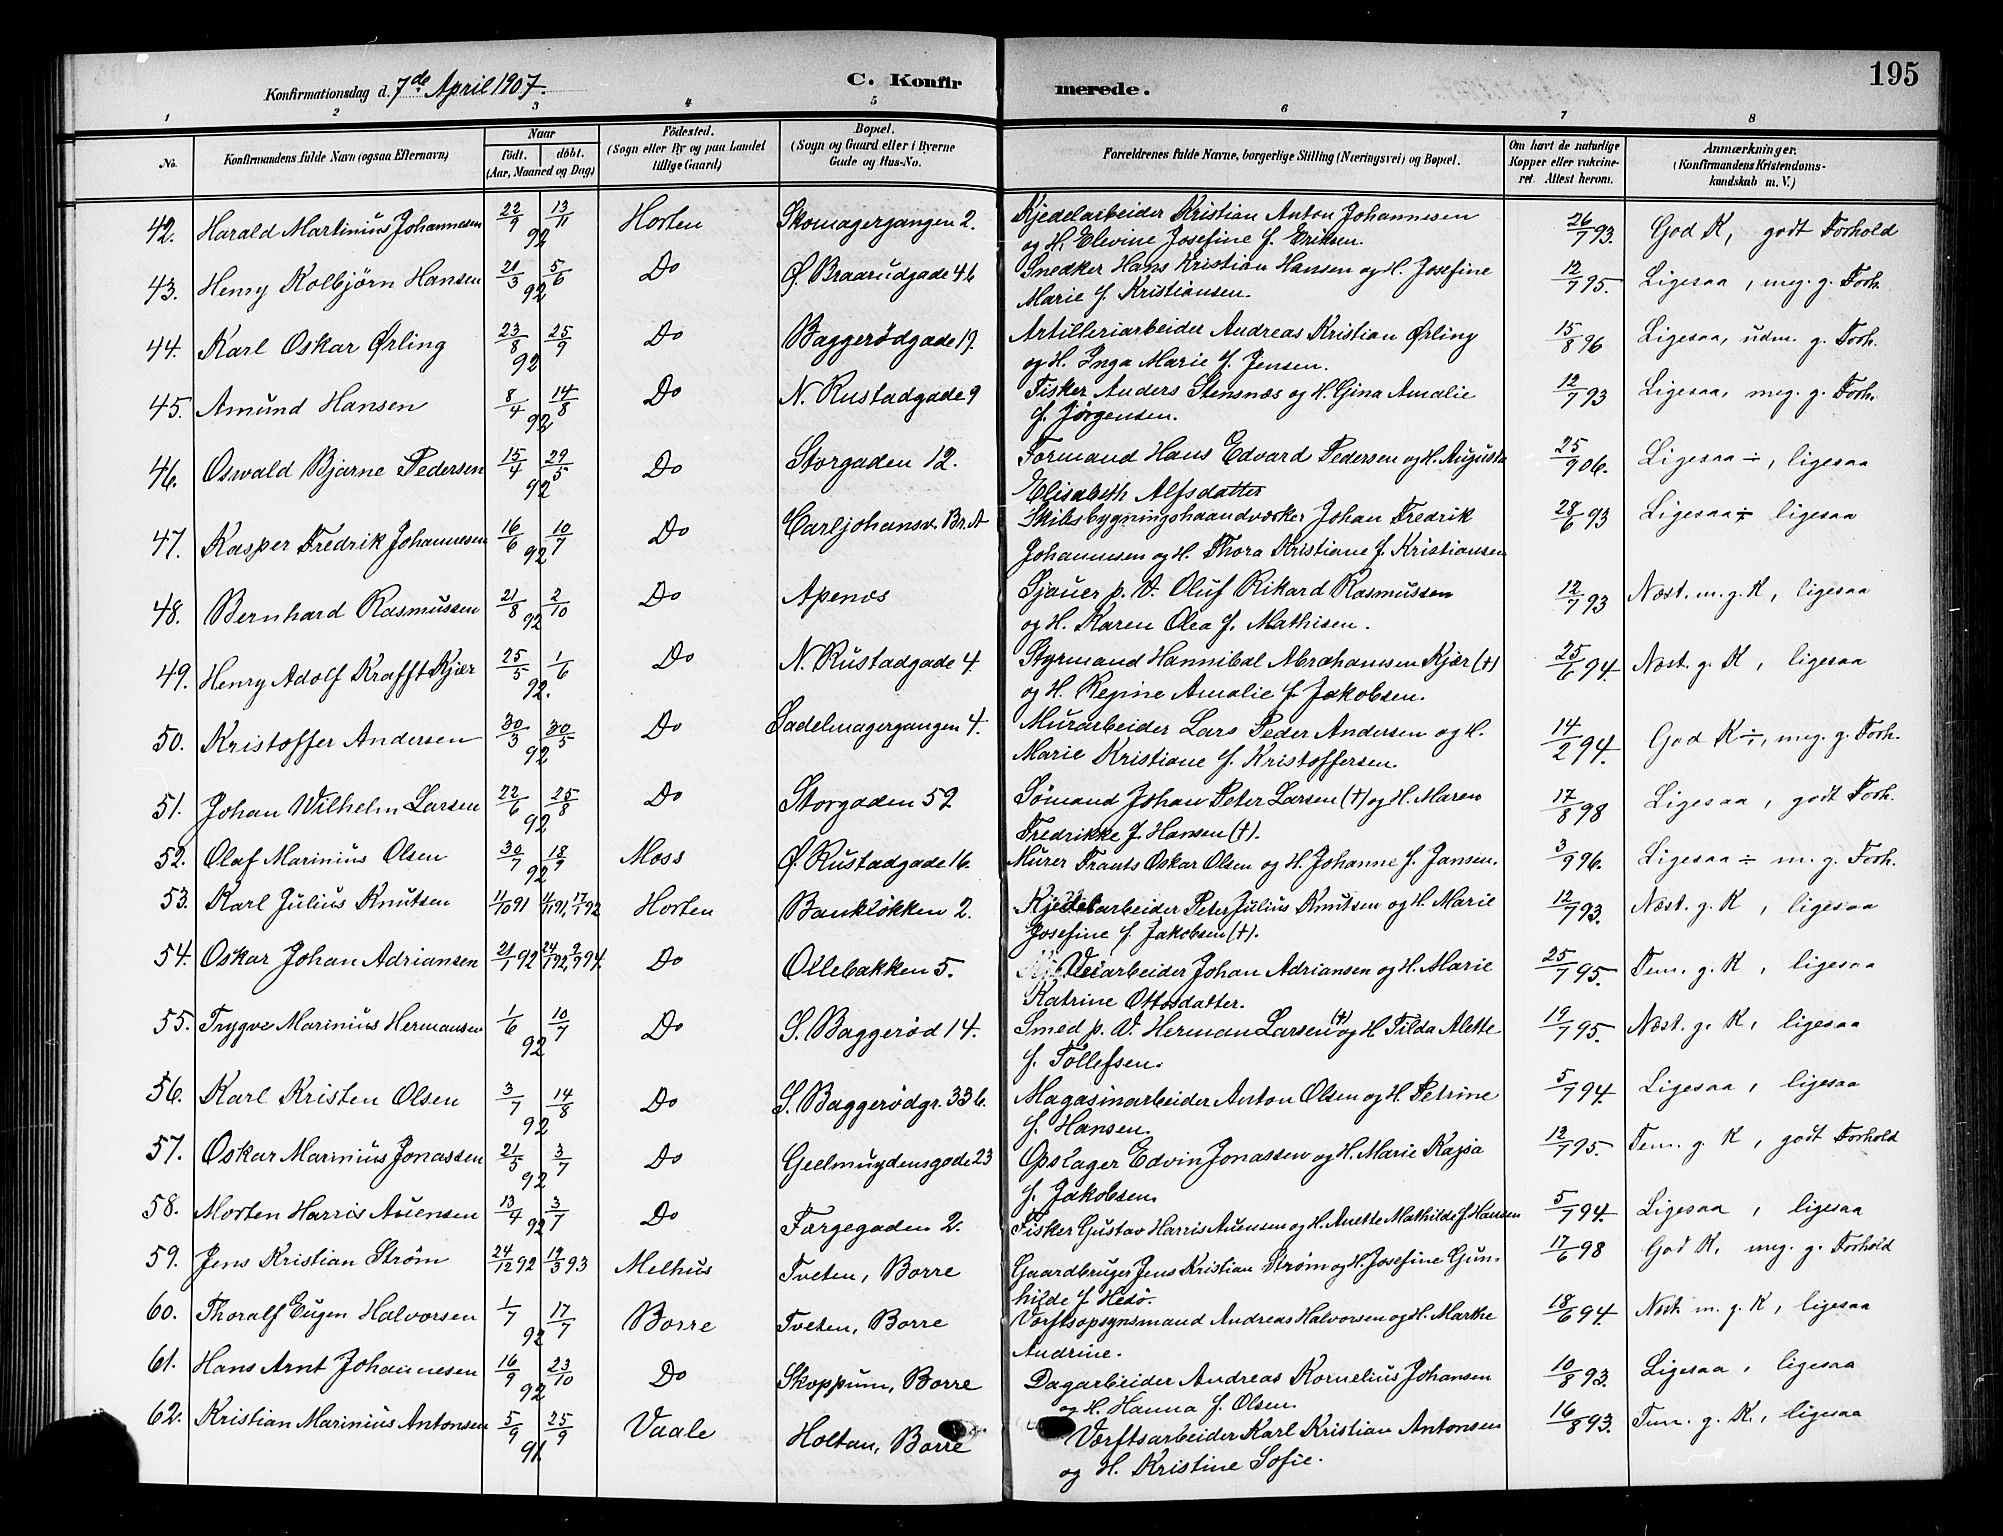 195
Konfirmationsdag d. 7de April 1907.
C. Konfirmerede.
1 2 3 4 5 6 7 8
No.
Konfirmandens fulde Navn (ogsaa Efternavn)
Naar
født. døbt.
(Aar, Maaned og Dag)
Fødested.
(Sogn eller By og paa Landet
tillige Gaard)
Bopæl.
(Sogn og Gaard eller i Byerne
Gade og Hus-No.
Forældrenes fulde Navne, borgerlige Stilling (Næringsvei) og Bopæl.
Om havt de naturlige
Kopper eller vakcine-
ret. Attest herom.
Anmærkninger.
(Konfirmandens Kristendoms-
kundskab m. V.)
42. Harald Martinius Johannesen 22/9 13/11 92 Horten Skomagergangen 2. Kjedelarbeider Kristian Anton Johannesen 26/7 93. God K, godt Forhold
og H. Elevine Josefine f. Eriksen.
43. Henry Kolbjørn Hansen 21/3 5/6 92 Do Ø. Braarudgade 46 Snedker Hans Kristian Hansen og H. Josefine 12/7 95. Ligesaa, meg. g. Forh.
Marie f. Kristiansen.
44. Karl Oskar Ørling 23/8 25/9 92 Do Baggerødgade 19. Artilleriarbeider Andreas Kristian Ørling 15/8 96 Ligesaa, udm. g. Forh.
og H. Inga Marie f. Jensen.
45. Amund Hansen 8/4 14/8 92 Do N. Rustadgade 9 Fisker Anders Stensnæs og H. Gina Amalie 12/7 93 Ligesaa, meg. g. Forh.
f. Jørgensen.
46. Oswald Bjarne Pedersen 15/4 29/5 92 Do Storgaden 12. Formand Hans Edvard Pedersen og H. Augusta 25/9 06. Ligesaa ÷, ligesaa
Elisabeth Alfsdatter
47. Kasper Fredrik Johannesen 16/6 10/7 92 Do Carljohansv. Br. A Skibsbygningshaandværker Johan Fredrik 28/6 93 Ligesaa ÷ ligesaa
Johannesen og H. Thora Kristiane f. Kristiansen
48. Bernhard Rasmussen 21/8 2/10 92 Do Apenes Sjauer p. V. Oluf Rikard Rasmussen 12/7 93 Næst. m. g. K, ligesaa
og H. Karen Olea f. Mathisen.
49. Henry Adolf Krafft Kjær 25/5 1/6 92. Do N. Rustadgade 4 Styrmand Hannibal Abrahamsen Kjær (†) 25/6 94. Næst. g. K, ligesaa
og H. Regine Amalie f. Jakobsen.
50. Kristoffer Andersen 30/3 30/5 92 Do Sadelmagergangen 4. Murarbeider Lars Peder Andersen og H. 14/2 94. God K ÷, meg. g. Forh.
Marie Kristiane f. Kristoffersen.
51. Johan Wilhelm Larsen 22/6 25/8 92 Do Storgaden 52 Sømand Johan Peter Larsen (†) og H. Maren 17/8 98 Ligesaa, godt Forh.
Fredrikke f. Hansen (†).
52. Olaf Marinius Olsen 30/7 18/9 92 Moss Ø. Rustadgade 16. Murer Frants Oskar Olsen og H. Johanne f. Jansen. 3/9 96. Ligesaa ÷ m. g. Forh.
53. Karl Julius Knutsen Horten Bankløkken 2. Kjedelarbeider Peter Julius Knutsen og H. Marie 12/7 93. Næst. g. K, ligesaa
Josefine f. Jakobsen (†).
54. Oskar Johan Adriansen 21/1 92 Do Ollebakken 5. Veiarbeider Johan Adriansen og H. Marie 25/7 95. Tem. g. K, ligesaa
Katrine Ottosdatter.
55. Trygve Marinius Hermansen 1/6 10/7 92 Do S. Baggerød 14. Smed p. V. Herman Larsen (†) og H Tilda Alette 19/7 95. Næst. g. K, ligesaa
f. Tollefsen.
56. Karl Kristen Olsen 3/7 14/8 92 Do S. Baggerødgr. 33b. Magasinarbeider Anton Olsen og H. Petrine 5/7 94. Ligesaa, ligesaa
f. Hansen.
57. Oskar Marinius Jonassen 21/5 3/7 92 Do Geelmuydensgade 23 Opslager Edvin Jonassen og H. Marie Kajsa 12/7 95. Tem. g. K, godt Forhold
f. Jakobsen.
58. Morten Harris Auensen 13/4 3/7 92 Do Færgegaden 2. Fisker Gustav Harris Auensen og H. Anette Mathilde f. Hansen 5/7 94. Ligesaa, ligesaa
59. Jens Kristian Strøm 24/12 92 19/3 93 Melhus Tveten, Borre Gaardbruger Jens Kristian Strøm og H. Josefine Gun- 17/6 98 God K, meg. g. Forhold
hilde f. Hedø.
60. Thoralf Eugen Halvorsen 1/7 17/7 92 Borre Tveten, Borre Værftsopsynsmand Andreas Halvorsen og H. Marthe 18/6 94. Næst. m. g. K, ligesaa
Andrine.
61. Hans Arnt Johannesen 16/9 23/10 92 Do Skoppum, Borre Dagarbeider Andreas Kornelius Johansen 10/8 93. Ligesaa, ligesaa
og H. Hanna f. Olsen.
62. Kristian Marinius Antonsen 5/9 25/9 91. Vaale Holtan, Borre Værftsarbeider Karl Kristian Antonsen 16/8 93. Tem. g. K., ligesaa
og H. Kristine Sofie.